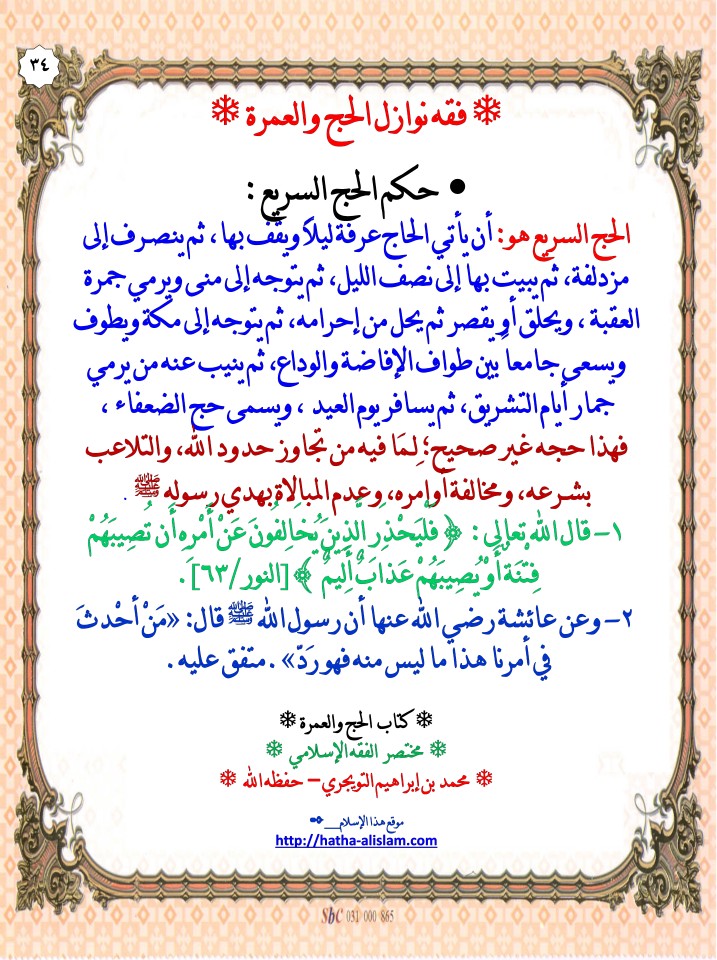 ٣٤
❄ فقه نوازل الحج والعمرة ❄
● حكم الحج السريع :
الحج السريع هو: أن يأتي الحاج عرفة ليلاً ويقف بها ، ثم ينصرف إلى
مزدلفة، ثم يبيت بها إلى نصف الليل، ثم يتوجه إلى منى ويرمي جمرة
العقبة ، ويحلق أو يقصر ثم يحل من إحرامه، ثم يتوجه إلى مكة ويطوف
ويسعى جامعاً بين طواف الإفاضة والوداع، ثم ينيب عنه من يرمي
جمار أيام التشريق، ثم يسافر يوم العيد ، ويسمى حج الضعفاء ،
فهذا حجه غير صحيح؛ لِمَا فيه من تجاوز حدود الله، والتلاعب
بشرعه، ومخالفة أوامره، وعدم المبالاة بهدي رسوله ﷺ .
١- قال الله تعالى : ﴿ فَلْيَحْذَرِ الَّذِينَ يُخَالِفُونَ عَنْ أَمْرِهِ أَن تُصِيبَهُمْ
فِتْنَةٌ أَوْ يُصِيبَهُمْ عَذَابٌ أَلِيمٌ ﴾ [النور/٦٣] .
٢- وعن عائشة رضي الله عنها أن رسول الله ﷺ قال: «مَنْ أحْدثَ
في أمرنا هذا ما ليس منه فهو رَدّ» . متفق عليه .
❄ كتاب الحج والعمرة ❄
❄ مختصر الفقه الإسلامي ❄
❄ محمد بن إبراهيم التويجري – حفظه الله ❄
موقع هذا الإسلام__✒
http://hatha-alislam.com
SbC 031 000 865